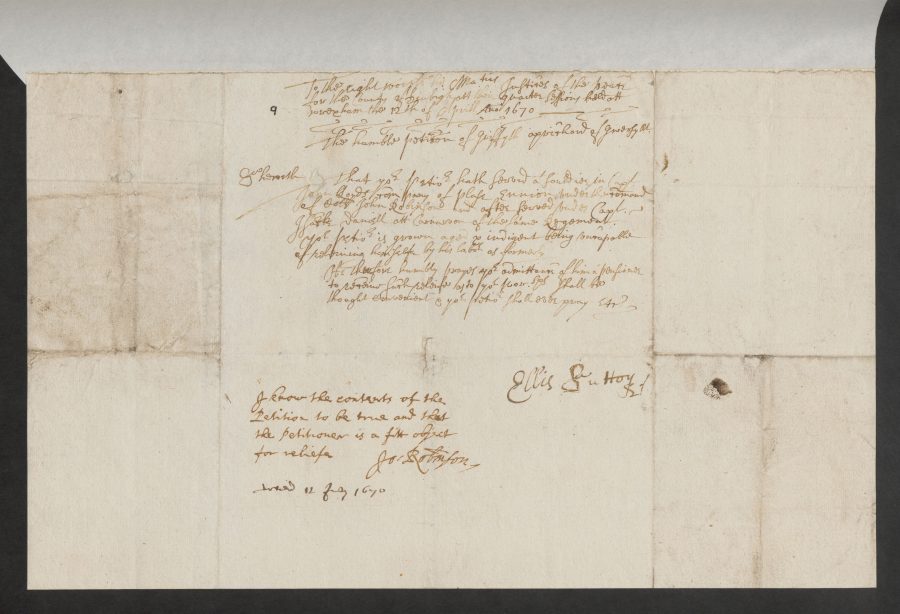 To the right wor:pll his Ma:ties Justices of the peace
for the County of Denbigh att their quarter sessions held att
wrexham the 12th of Aprill Ano 1670
9
The humble peticon of Griffyth ap Richard of Gwersyllt
Sheweth That yo:r petic:r hath served a souldier in Capt
Lloyds Company of under the Comand
of Coll: John Robinson and after served under Capt.
Daniell att Carnarvon of the same Regement.
yo:r petic:r is grown aged & indigent being uncapable
of releiving himselfe by his lab:r as formerly
He therefore humbly prayes yo:r admittance of him a pensioner
to receive such releiefe as to yo:r wor:pps shall be
thought Convenient & yo:r petic:r shall ever pray etc
Ellis Sutton
I know the contents of the
Petition to be true and that
the Petitioner is a fitt object
for reliefe Jo: Robinson
12 1670